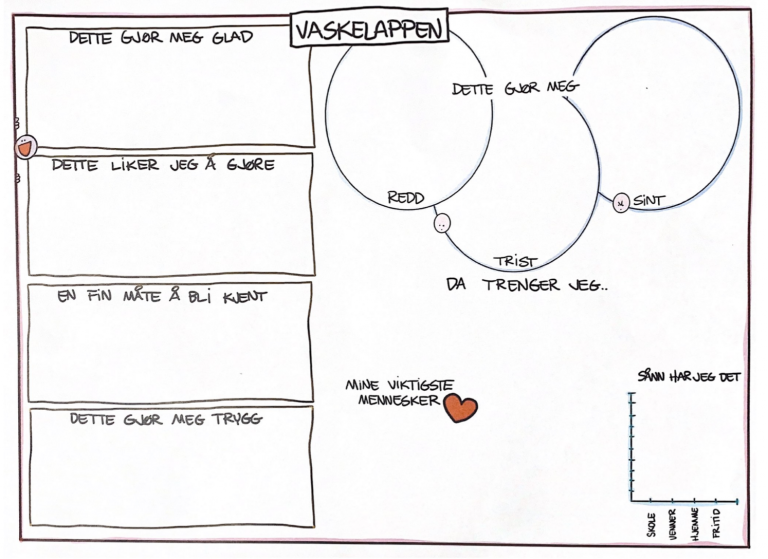 VASKELAPPEN
DETTE GJØR MEG GLAD
DETTE LIKER JEG Å GJØRE
EN FIN MÅTE Å BLI KJENT
DETTE GJØR MEG TRYGG
DETTE GJØR MEG
REDD
TRIST
SINT
DA TRENGER JEG..
MINE VIKTIGSTE
MENNESKER
SÅNN HAR JEG DET
SKOLE
VENNER
HJEMME
FRITID